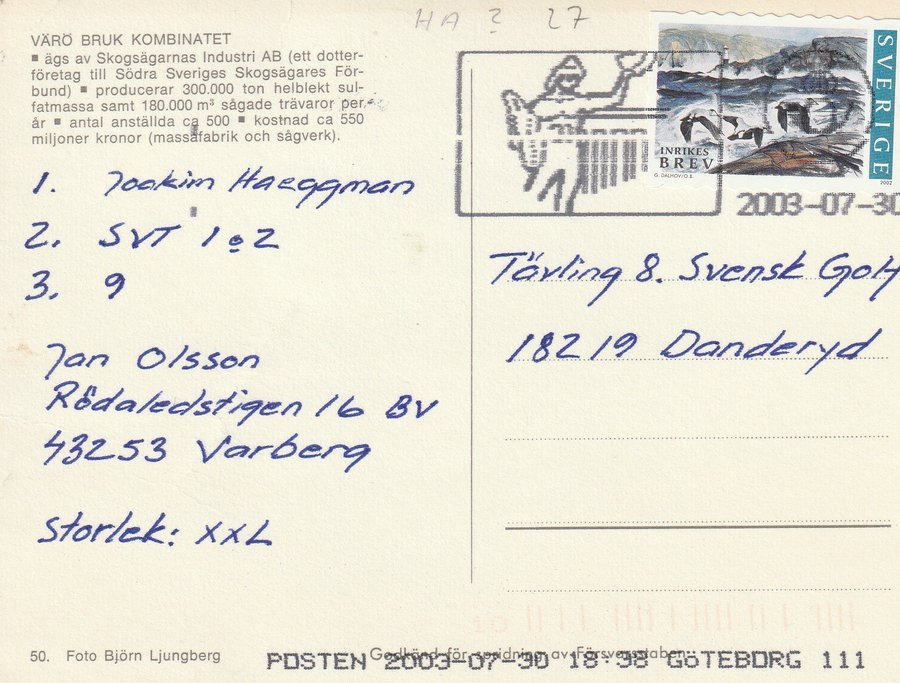 HA ? 27
VÄRÖ BRUK KOMBINATET
▪ ägs av Skogsägarnas Industri AB (ett dotter-
företag till Södra Sveriges Skogsägares För-
bund) ▪ producerar 300.000 ton helblekt sul-
fatmassa samt 180.000 m³ sågade trävaror per
år ▪ antal anställda ca 500 ▪ kostnad ca 550
miljoner kronor (massafabrik och sågverk).
1. Joakim Haeggman
2. SVT 1 o 2
3. 9
Jan Olsson
Rödaledstigen 16 BV
43253 Varberg
Storlek: XXL
SVERIGE
INRIKES
BREV
G. DALHOV/O.S.
2002
2003-07-30
Tävling 8. Svensk Golf
18219 Danderyd
50. Foto Björn Ljungberg
Godkänd för spridning av Försvarsstaben
POSTEN 2003-07-30 18·38 GÖTEBORG 111